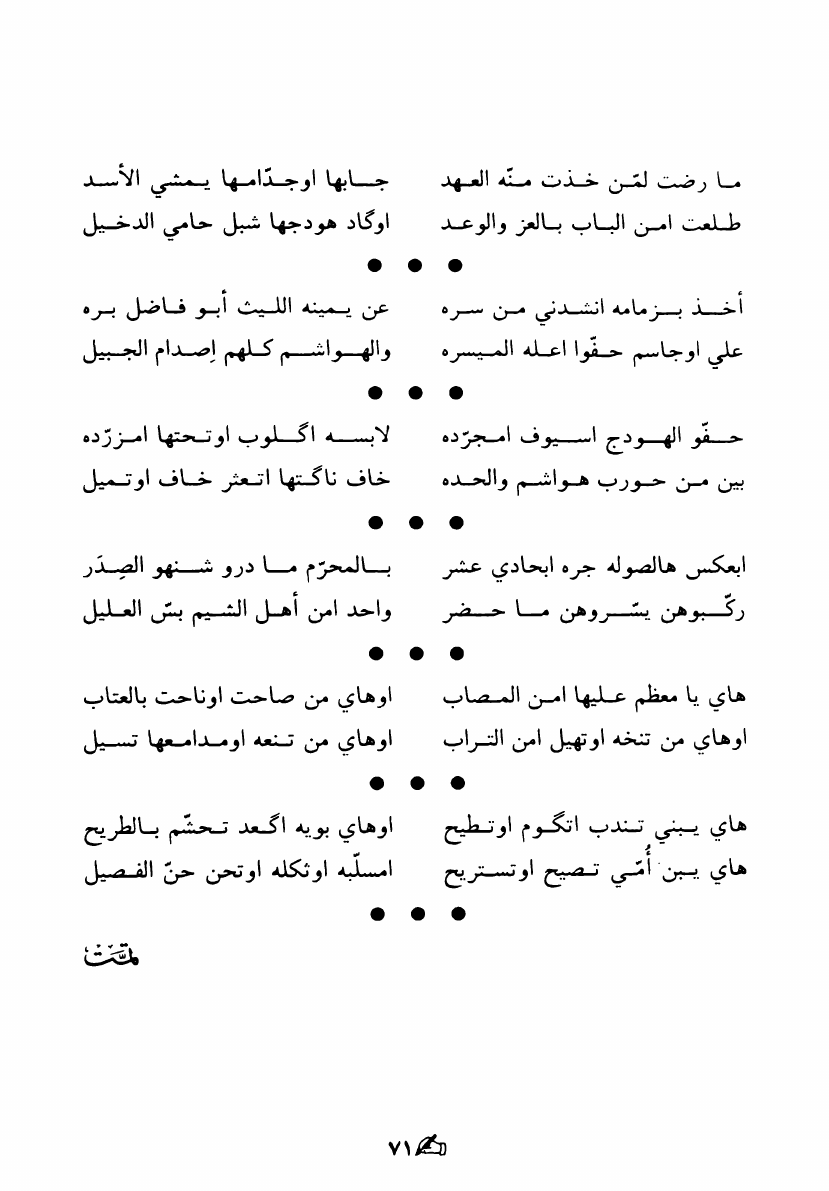 ما رضت لمّن خذت منّه العهد    جابها اوجدّامها يمشي الأسد
طلعت امن الباب بالعز والوعد    اوگاد هودجها شبل حامي الدخيل
● ● ●
أخذ بزمامه انشدني من سره    عن يمينه الليث أبو فاضل بره
علي اوجاسم حفّوا اعله الميسره    والهواشم كلهم إصدام الجبيل
● ● ●
حفّو الهودج اسيوف امجرّده    لابسه اگلوب اوتحتها امزرّده
بين من حورب هواشم والحده    خاف ناگتها اتعثر خاف اوتميل
● ● ●
ابعكس هالصوله جره ابحادي عشر    بالمحرّم ما درو شنهو الصِدَر
ركّبوهن يسّروهن ما حضر    واحد امن أهل الشيم بسّ العليل
● ● ●
هاي يا معظم عليها امن المصاب    اوهاي من صاحت اوناحت بالعتاب
اوهاي من تنخه اوتهيل امن التراب    اوهاي من تنعه اومدامعها تسيل
● ● ●
هاي يبني تندب اتگوم اوتطيح    اوهاي بويه اگعد تحشّم بالطريح
هاي يبن أُمّي تصيح اوتستريح    امسلّبه اوثكله اوتحن حنّ الفصيل
● ● ●
تمّت
٧١